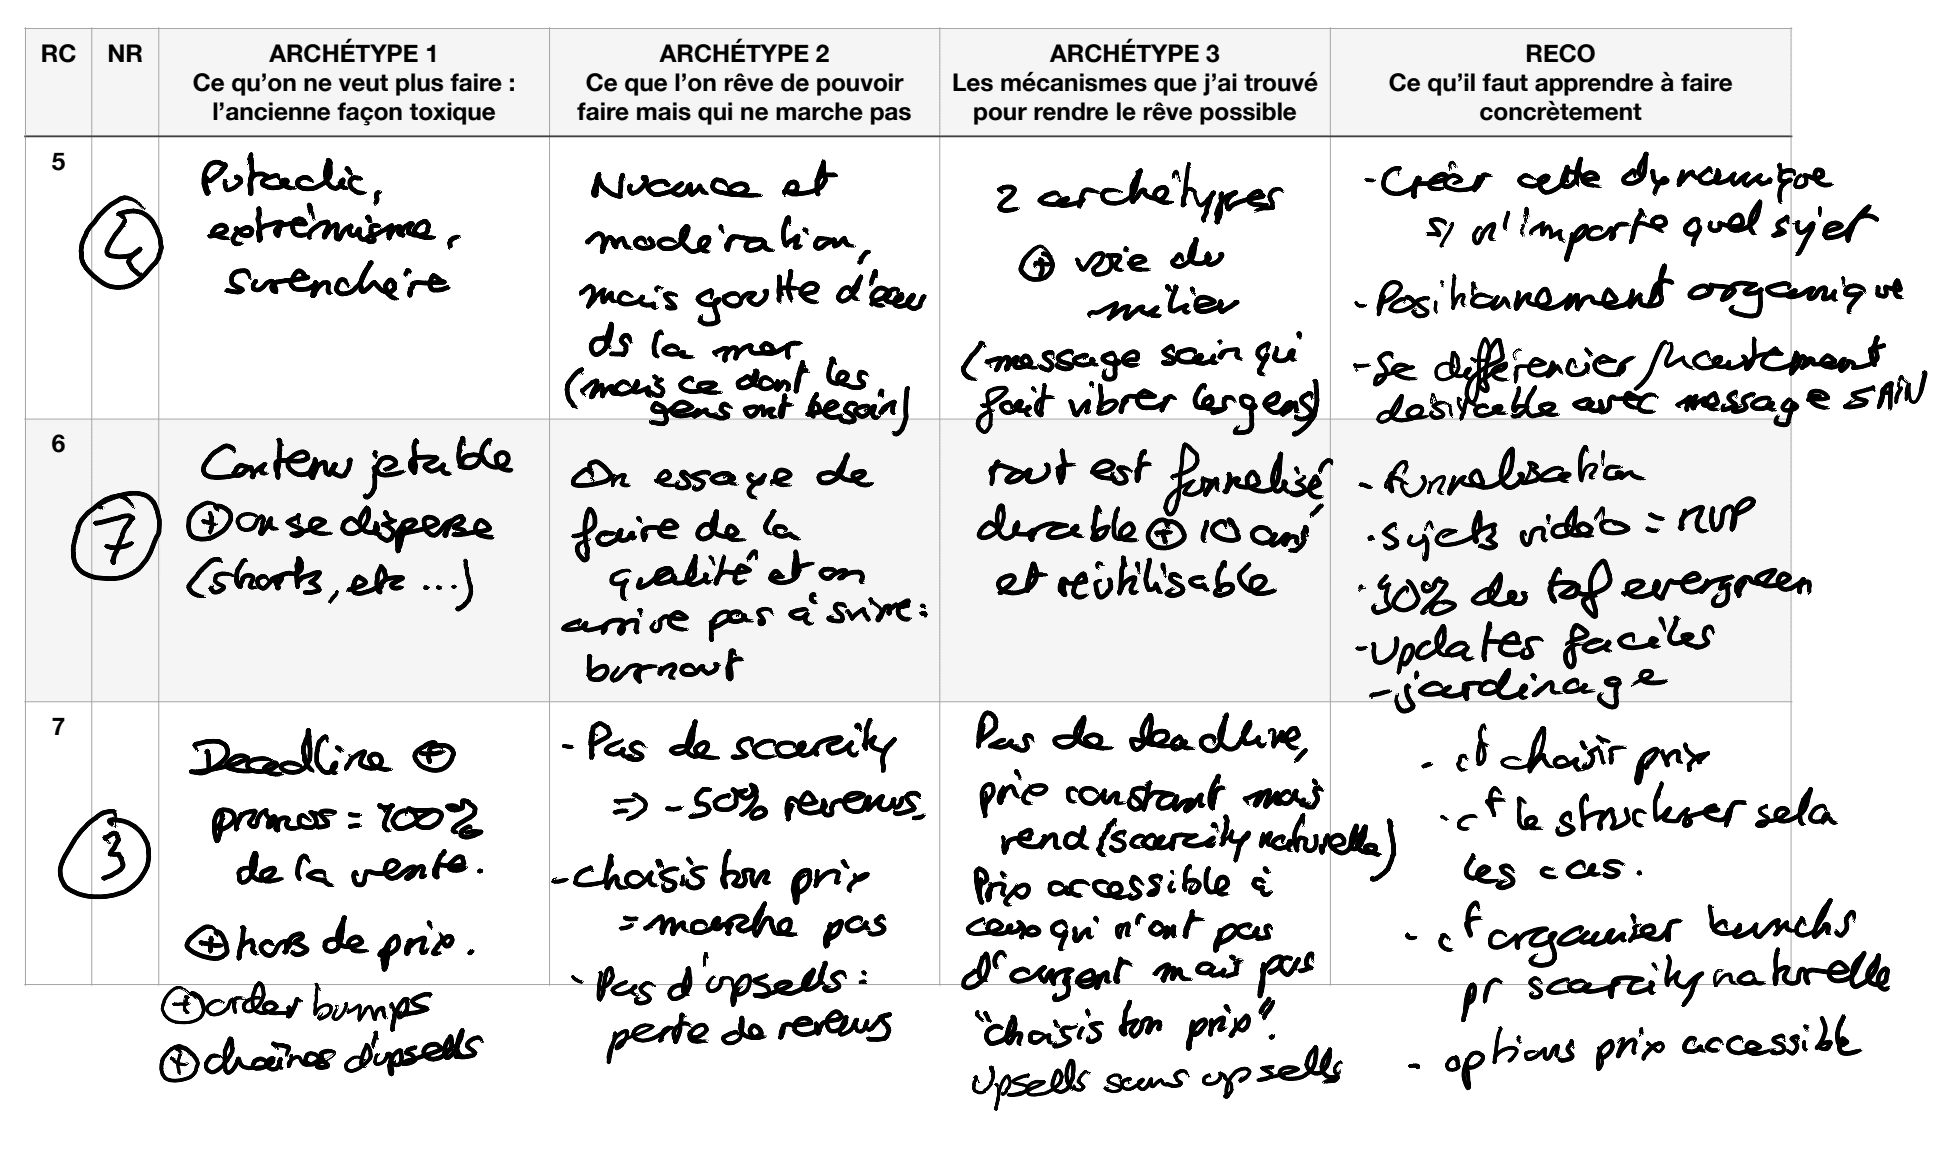 RC
NR
ARCHÉTYPE 1
Ce qu'on ne veut plus faire :
l'ancienne façon toxique
ARCHÉTYPE 2
Ce que l'on rêve de pouvoir
faire mais qui ne marche pas
ARCHÉTYPE 3
Les mécanismes que j'ai trouvé
pour rendre le rêve possible
RECO
Ce qu'il faut apprendre à faire
concrètement
5
4
Putaclic,
extrémisme,
surenchère
Nuance et
modération,
mais goutte d'eau
ds la mer
(mais ce dont les
gens ont besoin)
2 archétypes
+ voie du
milieu
(message sain qui
fait vibrer les gens)
- Créer cette dynamique
s/ n'importe quel sujet
- Positionnement organique
- Se différencier / hautement
désirable avec message SAIN
6
7
Contenu jetable
+ on se disperse
(shorts, etc ...)
On essaye de
faire de la
qualité et on
arrive pas à suivre :
burnout
Tout est funnelisé,
durable + 10 ans
et réutilisable
- funnelisation
- Sujets vidéo = MVP
- 90% du taf evergreen
- Updates faciles
- jardinage
7
3
Deadline +
promos = 100%
de la vente.
+ hors de prix.
+ order bumps
+ chaînes d'upsells
- Pas de scarcity
=> - 50% revenus.
- choisis ton prix
= marche pas
- Pas d'upsells :
perte de revenus
Pas de deadline,
prix constant mais
rend (scarcity naturelle)
Prix accessible à
ceux qui n'ont pas
d'argent mais pas
"choisis ton prix".
Upsells sans upsells
- ct choisir prix
- ct le structurer selon
les cas.
- ct organiser launchs
pr scarcity naturelle
- options prix accessible